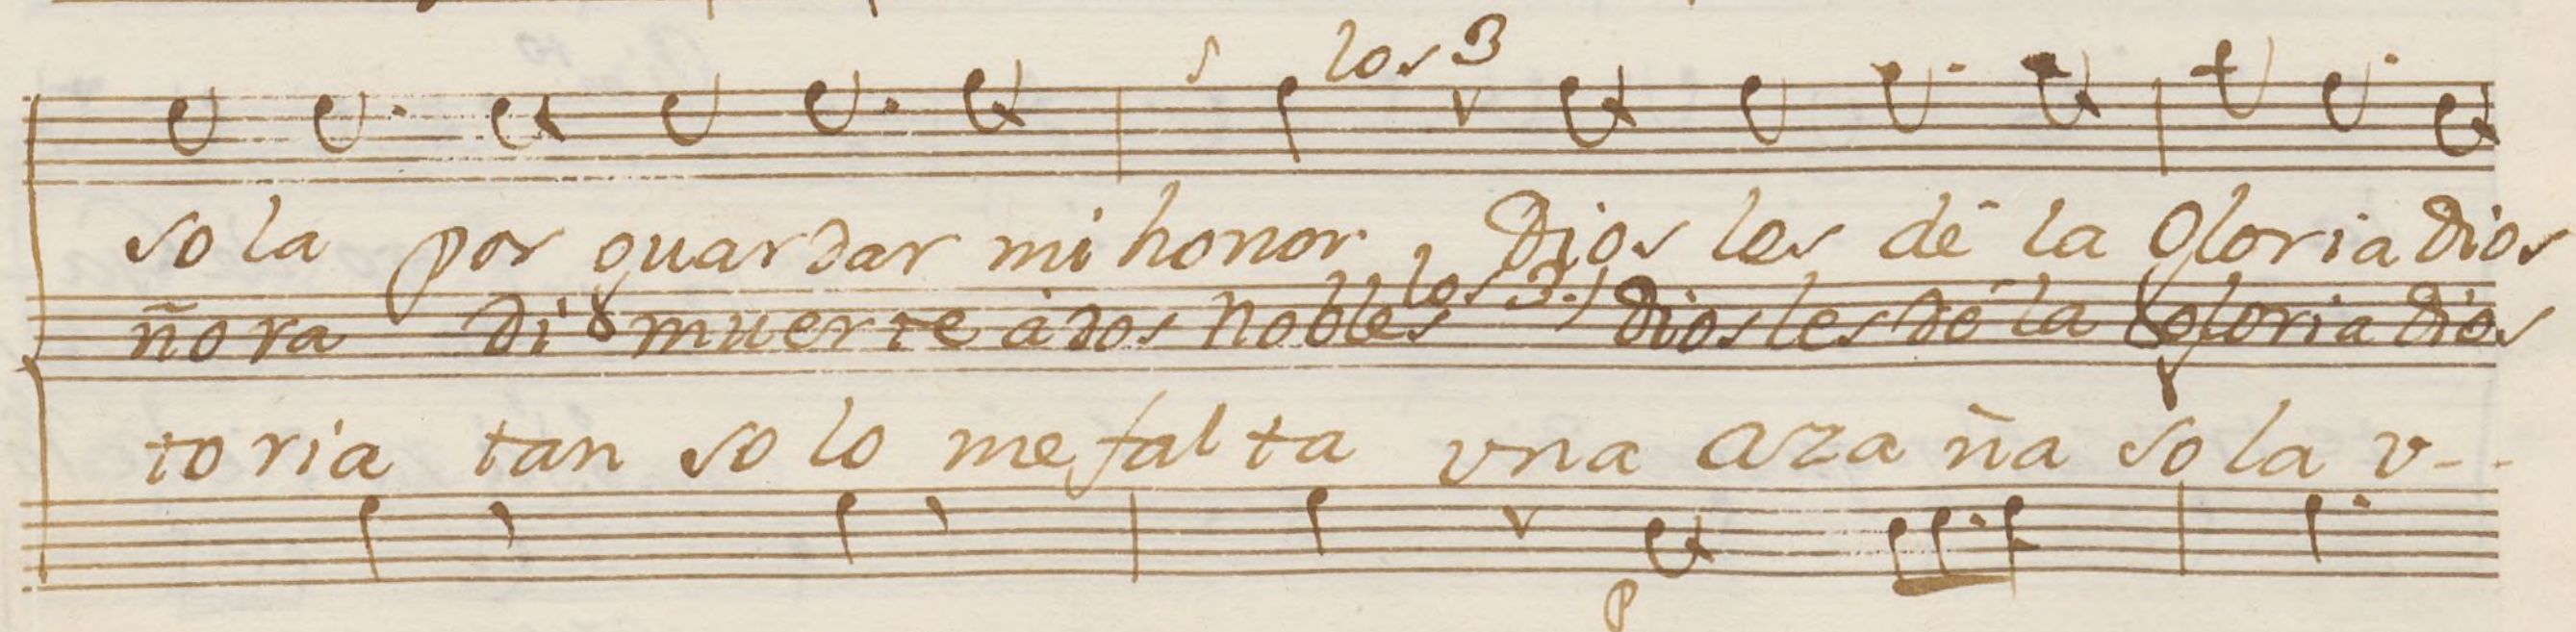 los 3
sola por guardar mi honor Dios les dé la Gloria Dios
ñora di muerte à dos Nobles los 3. Dios les dé la gloria Dios
toria tan solo me falta vna azaña sola v--
P